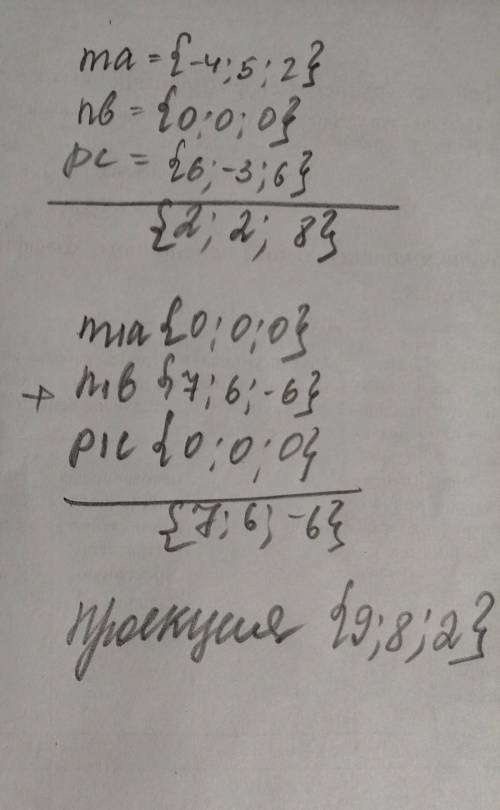 ma = {-4; 5; 2}
nв = {0; 0; 0}
pc = {6; -3; 6}
{2; 2; 8}
m₁a {0; 0; 0}
+ n₁в {7; 6; -6}
p₁c {0; 0; 0}
{7; 6; -6}
Проекция {9; 8; 2}